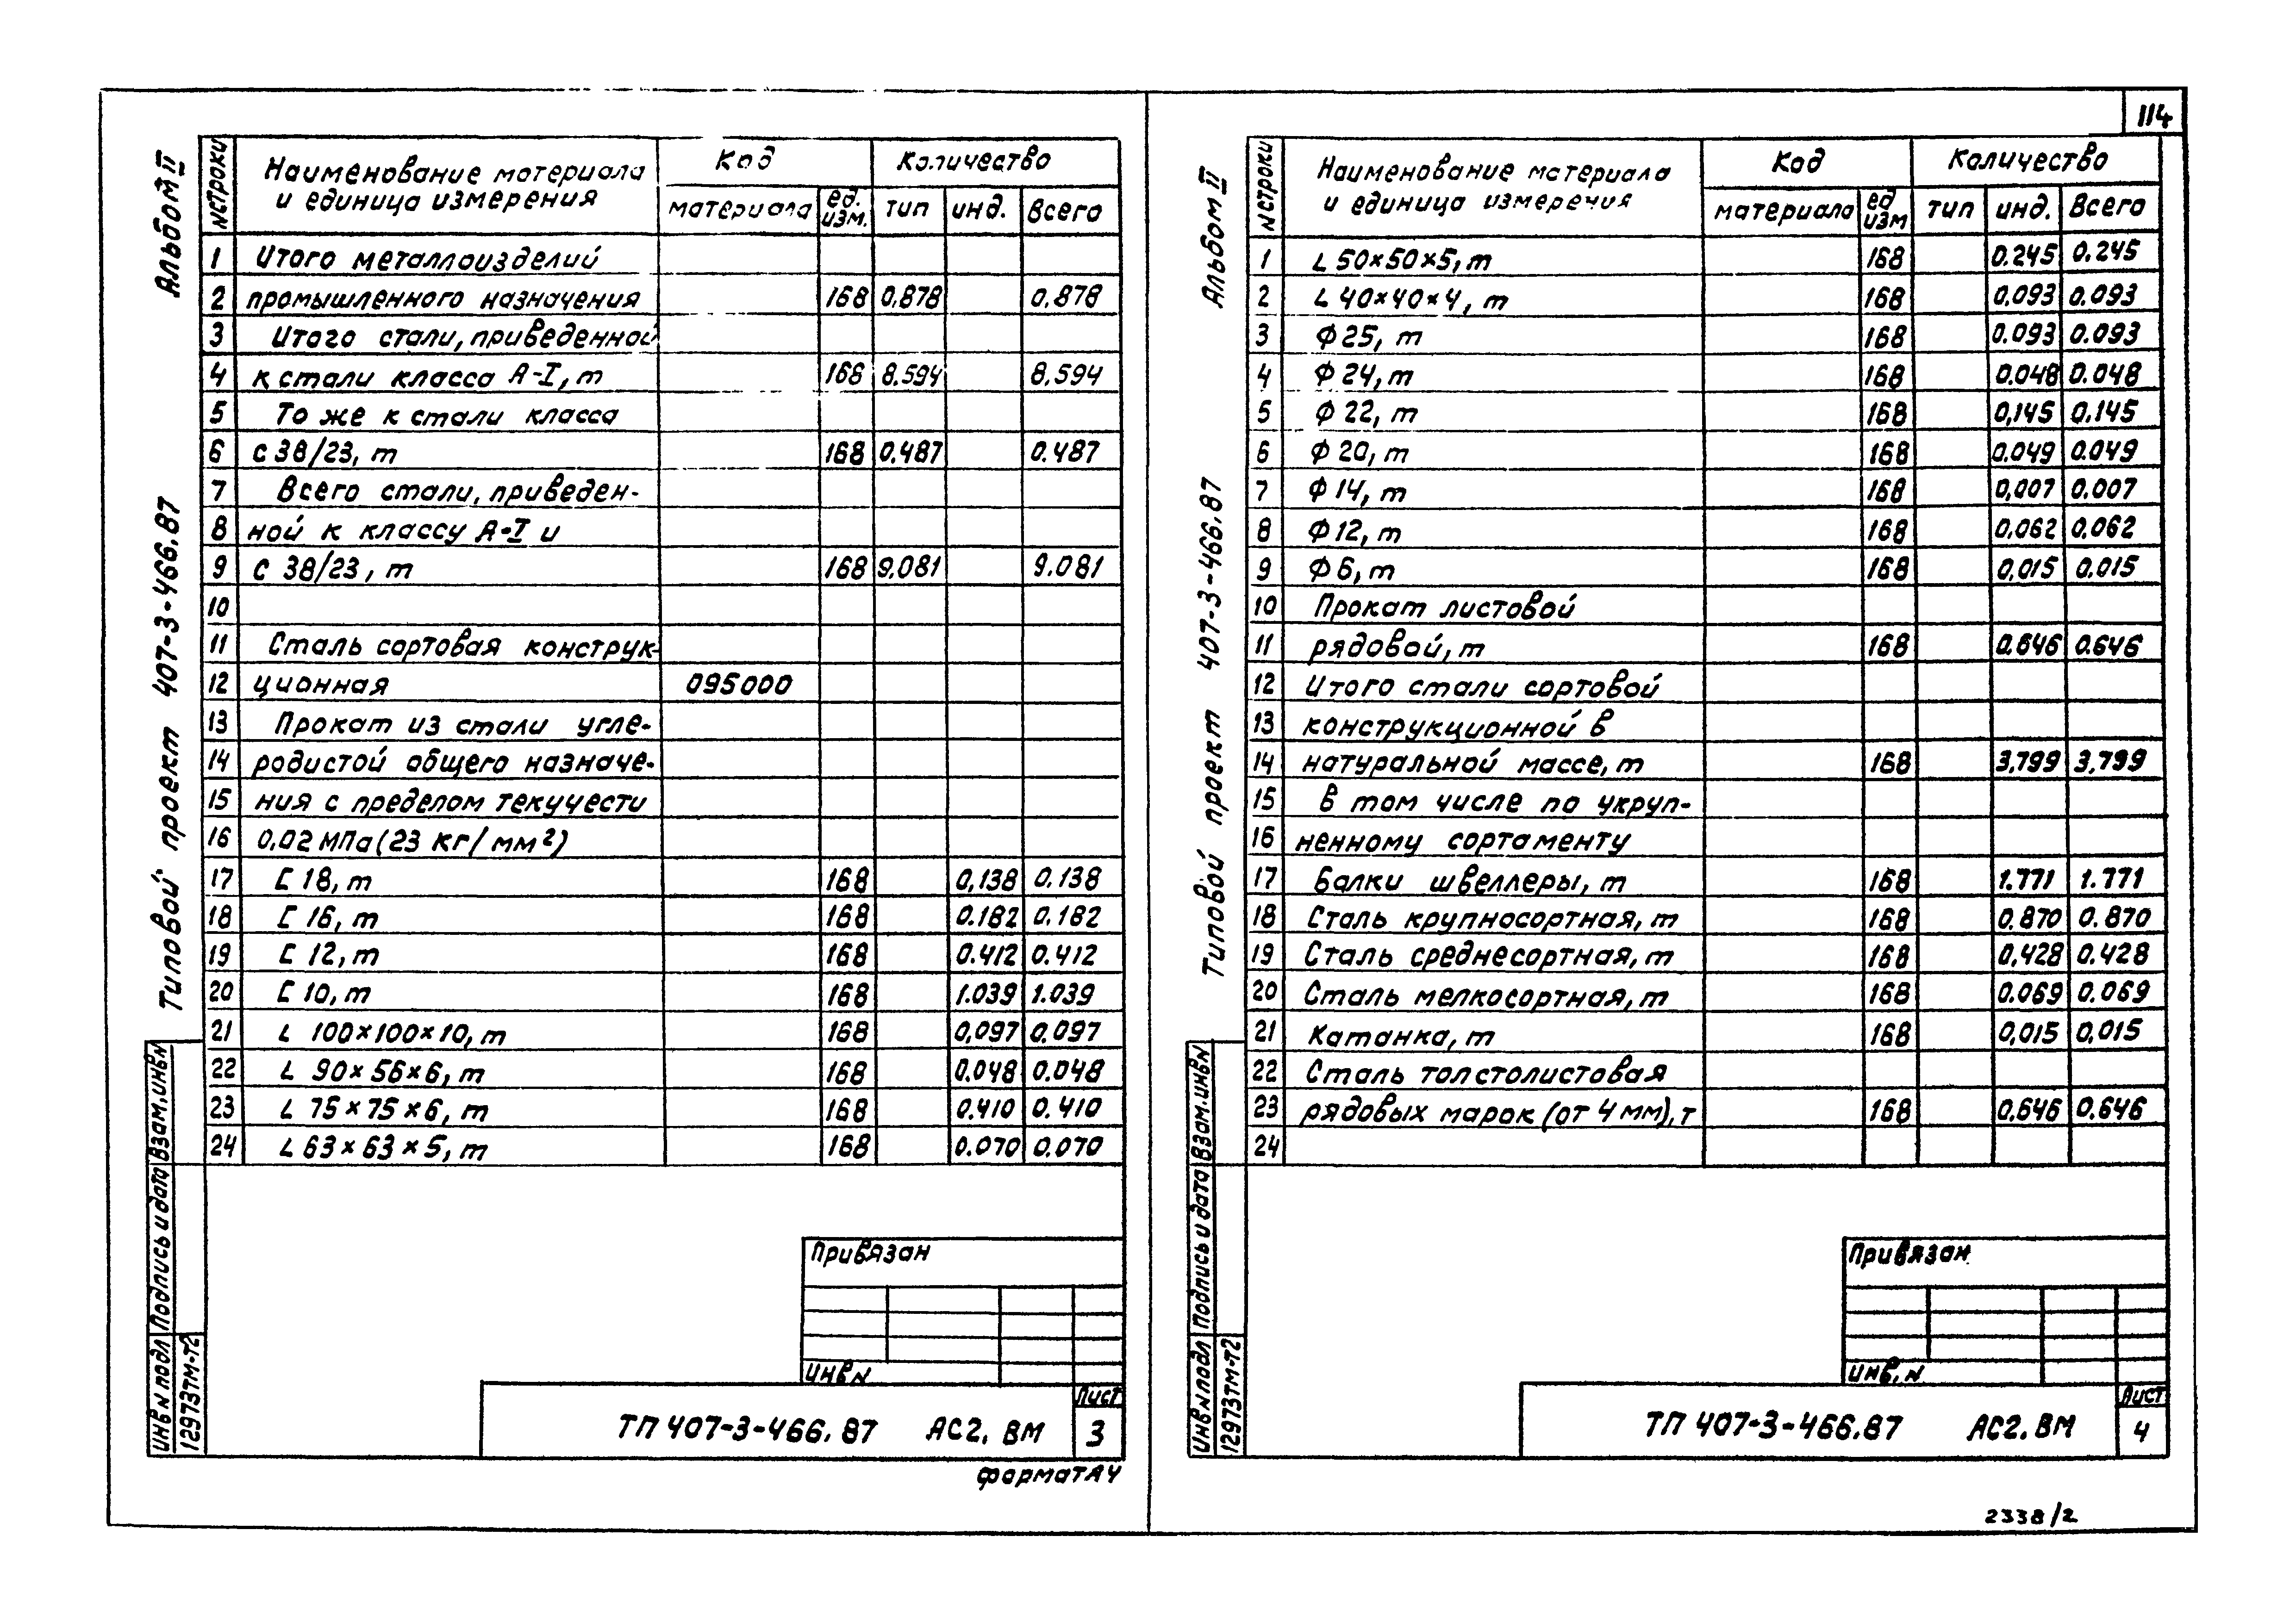 114
Альбом II
Типовой проект 407-3-466.87
N строки Наименование материала и единица измерения Код Количество
материала ед. изм. тип инд. Всего
1 Итого металлоизделий
2 промышленного назначения 168 0,878 0,878
3 Итого стали, приведенной
4 к стали класса А-I, т 168 8.594 8.594
5 То же к стали класса
6 с 38/23, т 168 0.487 0.487
7 Всего стали, приведен-
8 ной к классу А-I и
9 с 38/23, т 168 9.081 9.081
10
11 Сталь сортовая конструк-
12 ционная 095000
13 Прокат из стали угле-
14 родистой общего назначе-
15 ния с пределом текучести
16 0,02 МПа (23 кг/мм²)
17 [ 18, т 168 0,138 0.138
18 [ 16, т 168 0.182 0.182
19 [ 12, т 168 0.412 0.412
20 [ 10, т 168 1.039 1.039
21 L 100×100×10, т 168 0,097 0.097
22 L 90×56×6, т 168 0.048 0.048
23 L 75×75×6, т 168 0.410 0.410
24 L 63×63×5, т 168 0.070 0.070
Привязан
Инв N
ТП 407-3-466.87 АС2. ВМ
Лист
3
формат А4
Инв N подл Подпись и дата Взам. инв N
12973тм-т2
Альбом II
Типовой проект 407-3-466.87
N строки Наименование материала и единица измерения Код Количество
материала ед изм тип инд. Всего
1 L 50×50×5, т 168 0.245 0.245
2 L 40×40×4, т 168 0,093 0.093
3 Ф 25, т 168 0.093 0.093
4 Ф 24, т 168 0.048 0.048
5 Ф 22, т 168 0,145 0,145
6 Ф 20, т 168 0.049 0.049
7 Ф 14, т 168 0,007 0.007
8 Ф 12, т 168 0,062 0,062
9 Ф 6, т 168 0,015 0,015
10 Прокат листовой
11 рядовой, т 168 0.646 0.646
12 Итого стали сортовой
13 конструкционной в
14 натуральной массе, т 168 3,799 3,799
15 В том числе по укруп-
16 ненному сортаменту
17 Балки швеллеры, т 168 1.771 1.771
18 Сталь крупносортная, т 168 0.870 0.870
19 Сталь среднесортная, т 168 0,428 0.428
20 Сталь мелкосортная, т 168 0.069 0.069
21 Катанка, т 168 0,015 0,015
22 Сталь толстолистовая
23 рядовых марок (от 4 мм), т 168 0.646 0.646
24
Привязан
Инв. N
ТП 407-3-466.87 АС2. ВМ
Лист
4
Инв N подл Подпись и дата Взам. инв N
12973тм-т2
2338/2